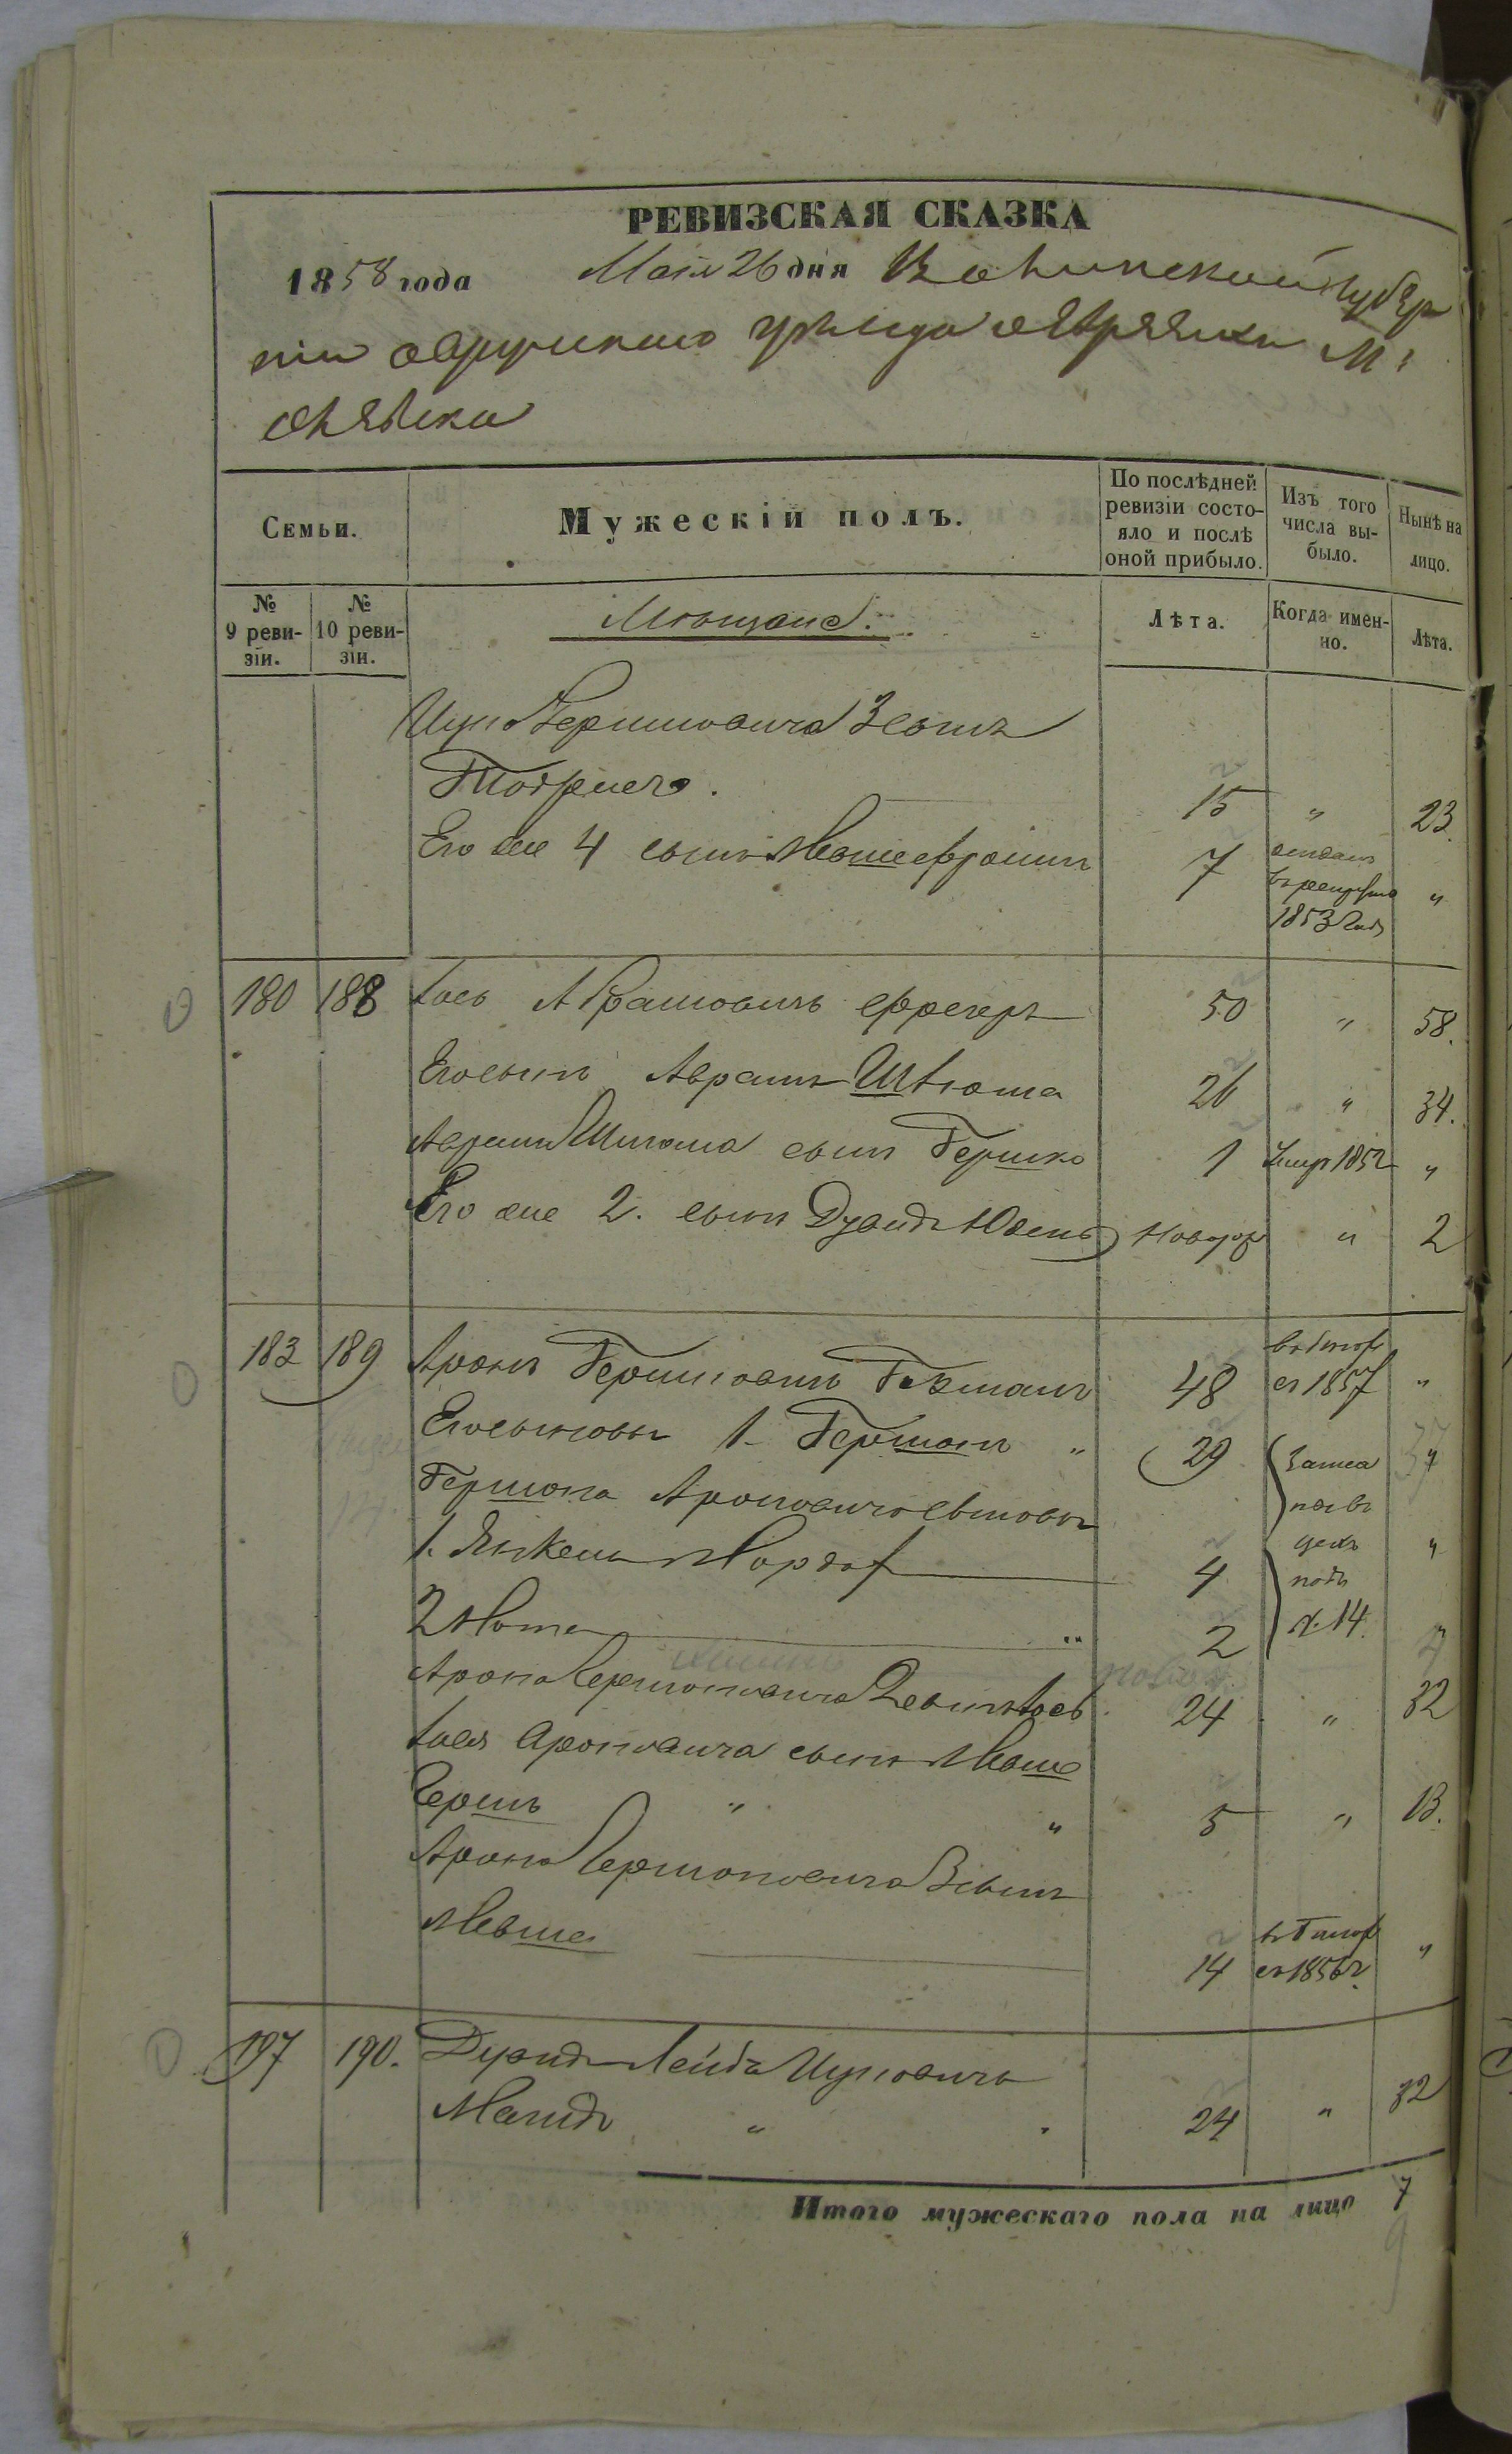 РЕВИЗСКАЯ СКАЗКА
1858 года Маія 26 дня Волынской Губер
ніи овручскаго уѣзда евреяхъ М:
олевска
Семьи.
Мужескій полъ.
По послѣдней ревизіи состояло и послѣ оной прибыло.
Изъ того числа выбыло.
Нынѣ на лицо.
№ 9 ревизіи.
№ 10 ревизіи.
Мѣщане.
Лѣта.
Когда именно.
Лѣта.
Ицка Гершковича 3 сынъ
15 " 23
Его же 4 сынъ Мошефроимъ 7 отданъ в рекруты 1853 года "
180 188 Іось Абрамовичъ 50 " 58.
Его сынъ Аврамъ Шлиома 26 " 34.
Аврама Шлиома сынъ Гершко 1 умер 1852 "
Его же 2. сынъ Дувидъ Новорож " 2
183 189 Аронъ Гершковичъ 48 ег 1857 "
Его сыновья 1. Гершонъ " 29 "
Гершона Ароновича сыновья
1. Янкель Мордх 4 "
2 Мотя " 2
под № 14.
Арона Гершоновича 2 сынъ Іось 24 " 32
Іося Ароновича сынъ Моше
Гершъ " " 5 " 13.
Арона Гершоновича 3 сынъ
Мовша 14 "
197 190. Дувидъ Лейба Ицковичъ
Магидъ " 24 " 32
Итого мужескаго пола на лицо 7
9